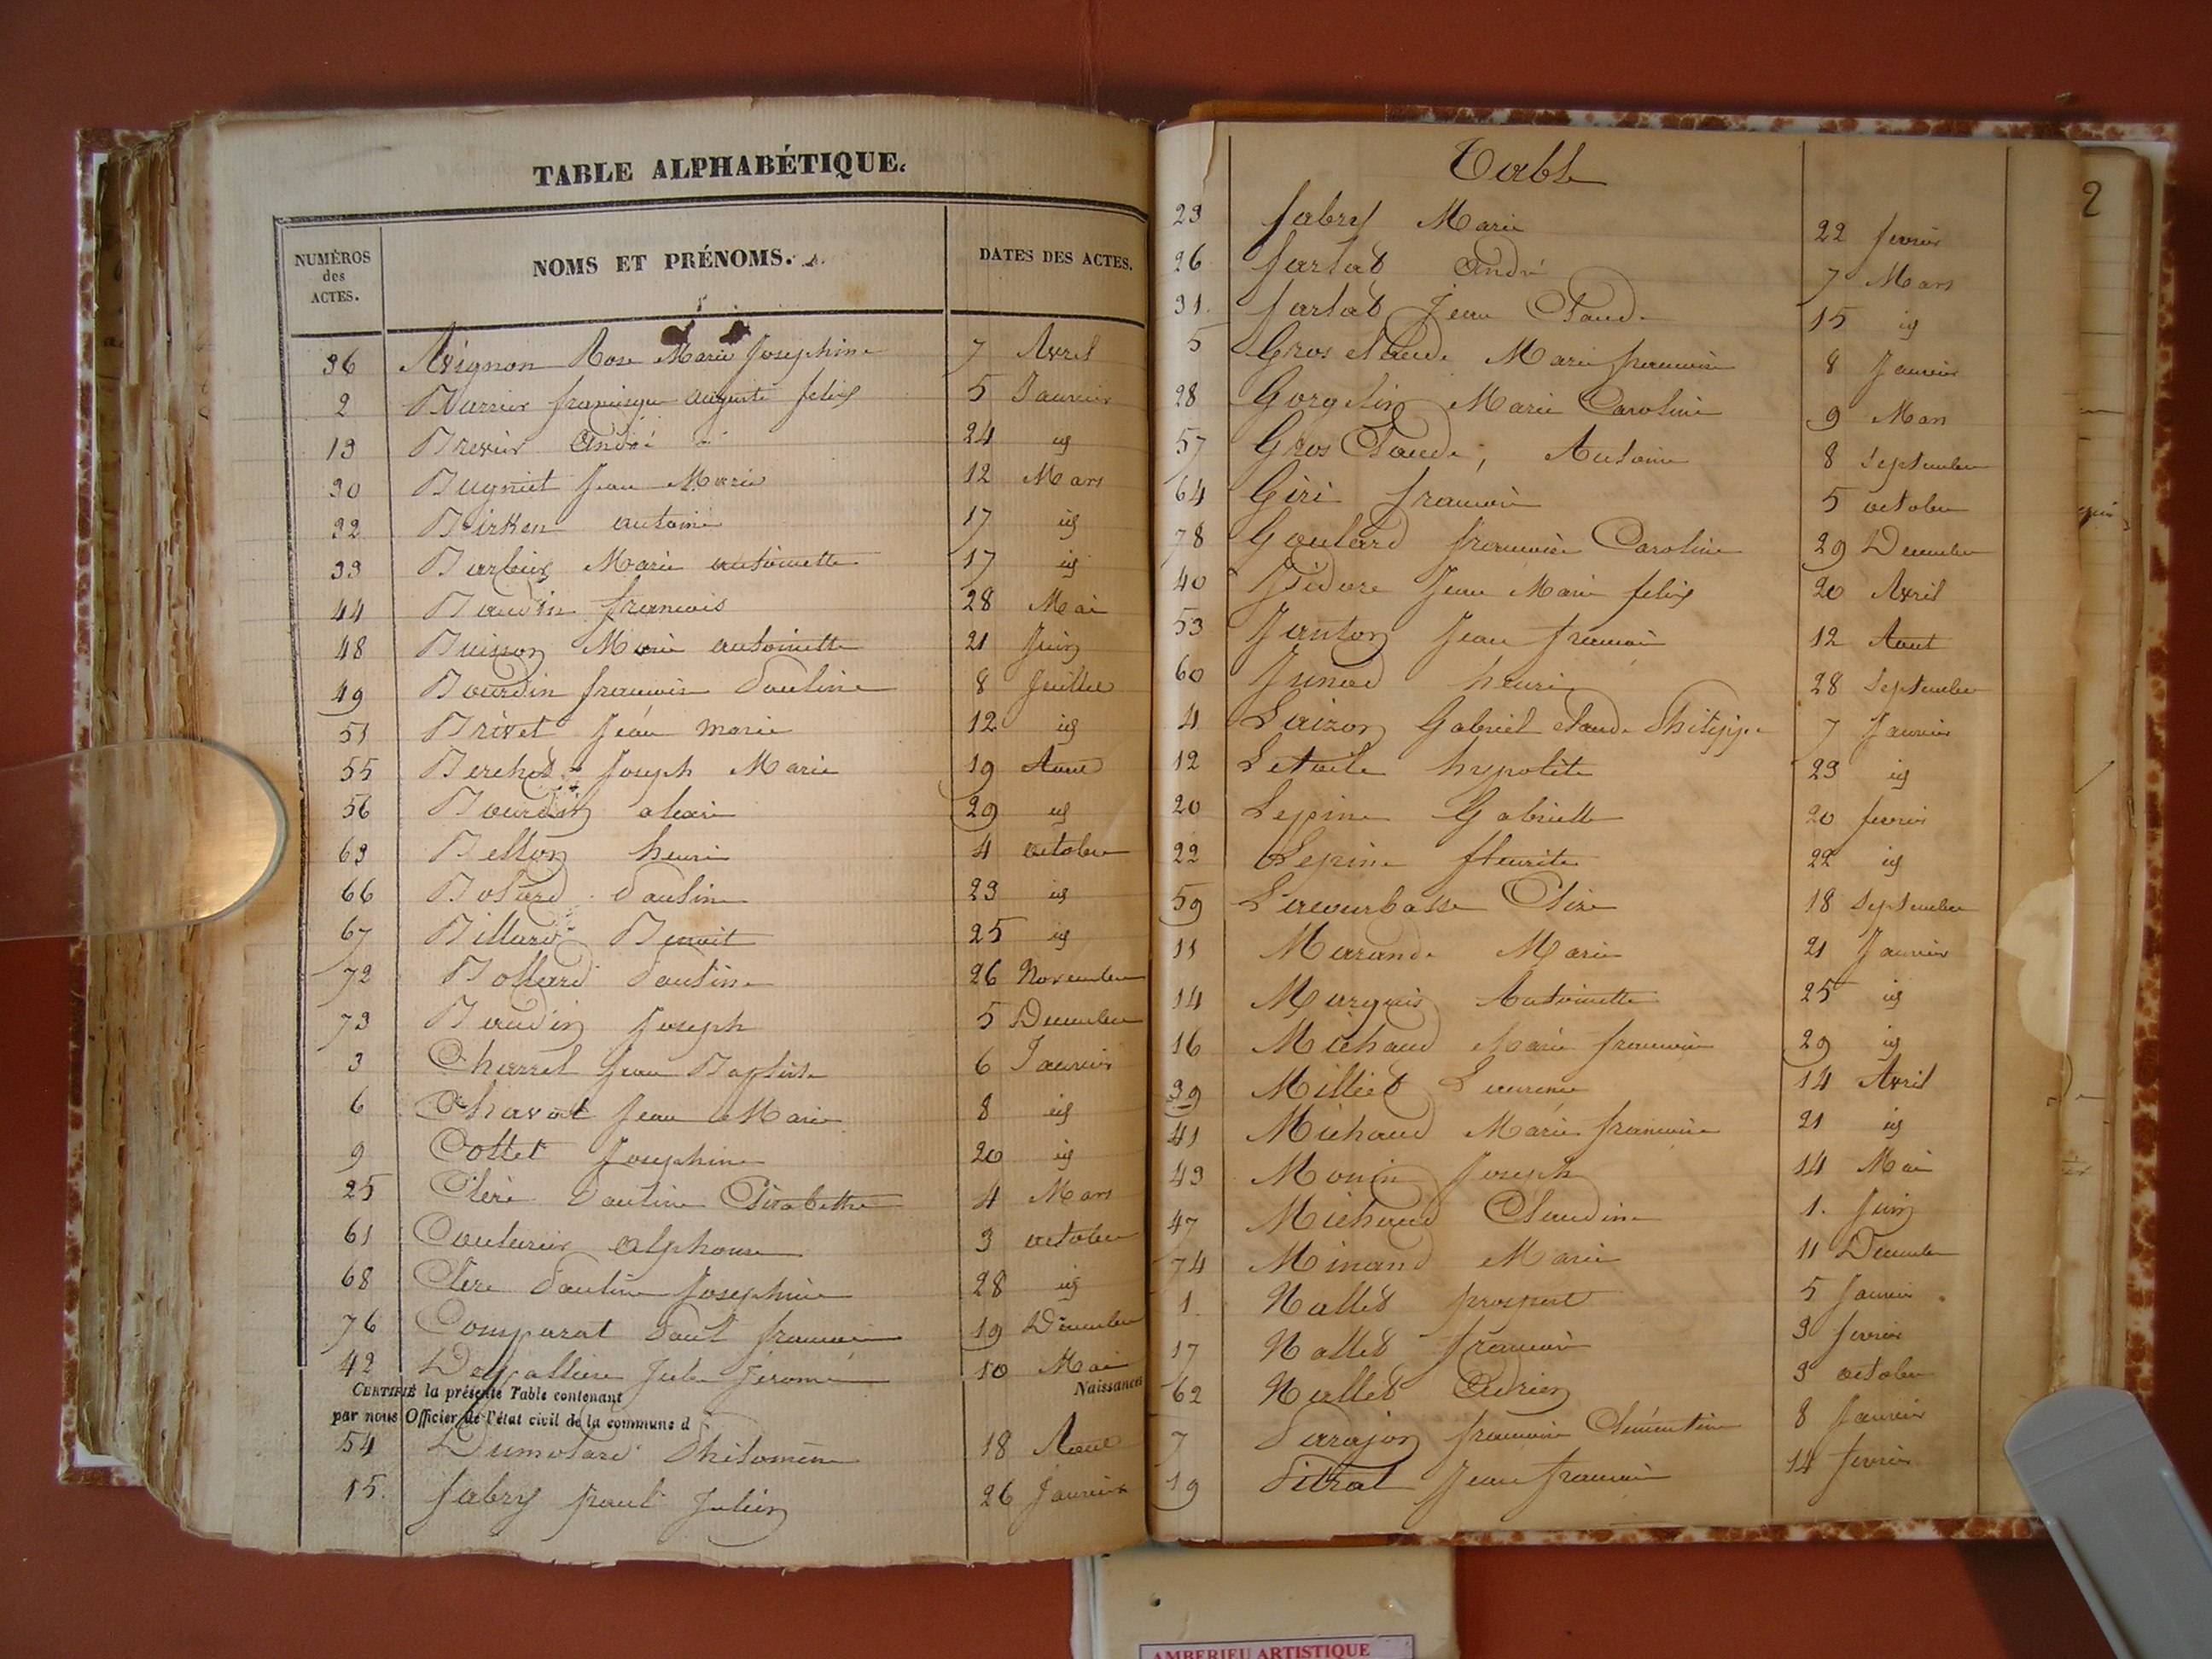 TABLE ALPHABÉTIQUE.
NUMÉROS des ACTES.
NOMS ET PRÉNOMS.
DATES DES ACTES.
36 Avignon Rose Marie Josephine 7 Avril
2 Barrier françisque auguste felix 5 Janvier
13 Brevier André 24 id
30 Bugniet Jean Marie 12 Mars
32 Birken antoine 17 id
33 Barbier Marie antoinette 17 id
44 Baudin francois 28 Mai
48 Buisson Marie antoinette 21 Juin
49 Bourdin francoise Pauline 8 Juillet
51 Brivet Jean marie 12 id
55 Berchet Joseph Marie 19 Aout
56 Bourdin alexis 29 id
63 Belton henri 4 octobre
66 Bolard Pauline 23 id
67 Billard Benoit 25 id
72 Bollard Pauline 26 Novembre
73 Baudin Joseph 5 Decembre
3 Charrel Jean Baptiste 6 Janvier
6 Chavat Jean Marie 8 id
9 Cottet Josephine 20 id
25 Clere Pauline Elisabethe 4 Mars
61 Couturier alphonse 3 octobre
68 Clere Pauline Josephine 28 id
76 Comparat Paul francois 19 Décembre
42 Depallière Jules Jerome 10 Mai
CERTIFIÉ la présente Table contenant Naissances
par nous Officier de l'état civil de la commune d
54 Dumolard Philomène 18 Aout
15. fabry paul Julien 26 Janvier
Table
2
23 fabry Marie 22 fevrier
26 farlat André 7 Mars
31. farlat Jean Claude 15 id
5 Gros Claude Marie francoise 8 Janvier
28 Gorgelin Marie Caroline 9 Mars
57 Gros Claude, Antoine 8 Septembre
64 Giri francois 5 octobre
78 Goulard francoise Caroline 29 Decembre
40 Isidore Jean Marie felix 20 Avril
53 Janton Jean francois 12 Aout
60 Junod henri 28 Septembre
4 Laizon Gabriel Claude Philippe 7 Janvier
12 Letoile hypolite 23 id
20 Lepine Gabrielle 20 fevrier
22 Lepine fleurite 22 id
59 Lacourbasse Claire 18 Septembre
11 Marande Marie 21 Janvier
14 Marquis Antoinette 25 id
16 Michaud Marie francoise 29 id
39 Milliet Laurence 14 Avril
41 Michaud Marie francoise 21 id
43 Monin Joseph 14 Mai
47 Michaud Claudine 1. Juin
74 Minand Marie 11 Decembre
1. Nallet prospert 5 Janvier
17 Nallet francois 3 fevrier
62 Nallet Adrien 3 octobre
7 Parajon francoise Clémentine 8 Janvier
19 Pitrat Jean francois 14 fevrier
AMBERIEU ARTISTIQUE